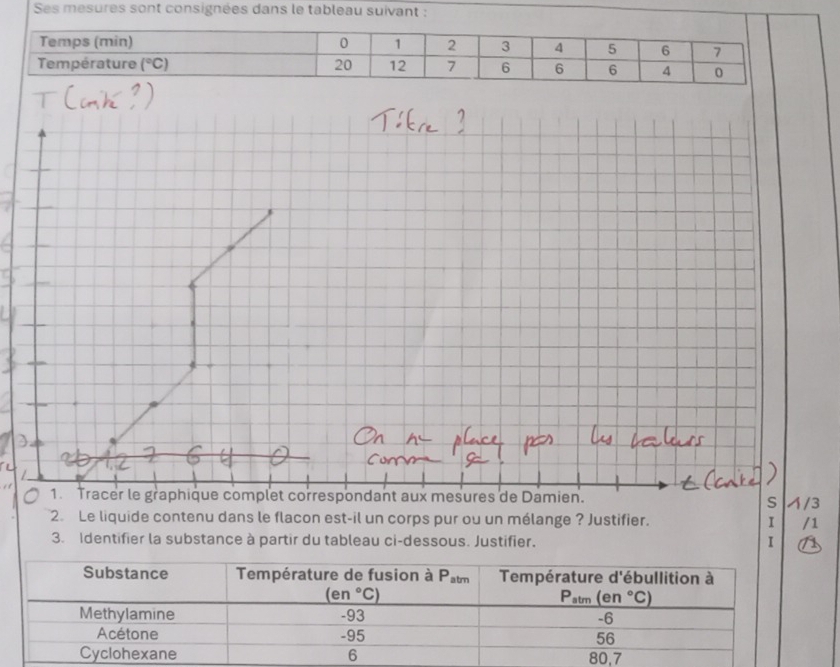 Ses mesures sont consignées dans le tableau suivant :
Temps (min) 0 1 2 3 4 5 6 7
Température (°C) 20 12 7 6 6 6 4 0
T (unité ?)
Titre ?
7
6
5
4
3
2
20 12 7 6 4 0
On ne place pas les valeurs
comme ça !
t (unité)
0
1. Tracer le graphique complet correspondant aux mesures de Damien.
S 1/3
2. Le liquide contenu dans le flacon est-il un corps pur ou un mélange ? Justifier.
I /1
3. Identifier la substance à partir du tableau ci-dessous. Justifier.
I /1
Substance Température de fusion à Patm (en °C) Température d'ébullition à Patm (en °C)
Methylamine -93 -6
Acétone -95 56
Cyclohexane 6 80,7